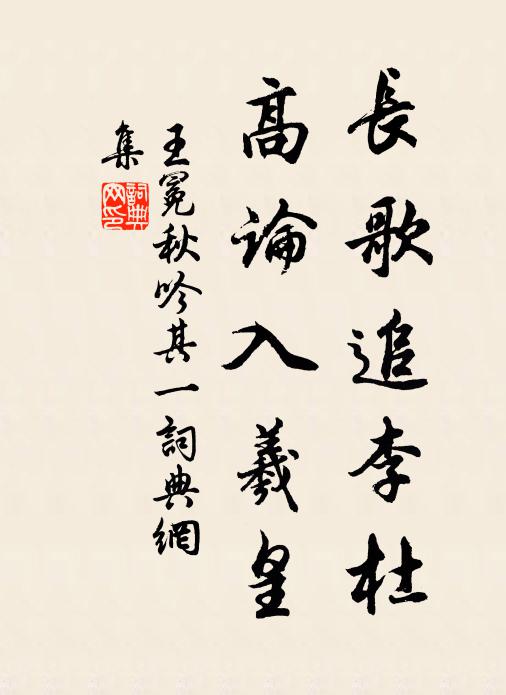 長歌追李杜
高論入羲皇
王冕秋吟其一詞典網
集
詞典
网印